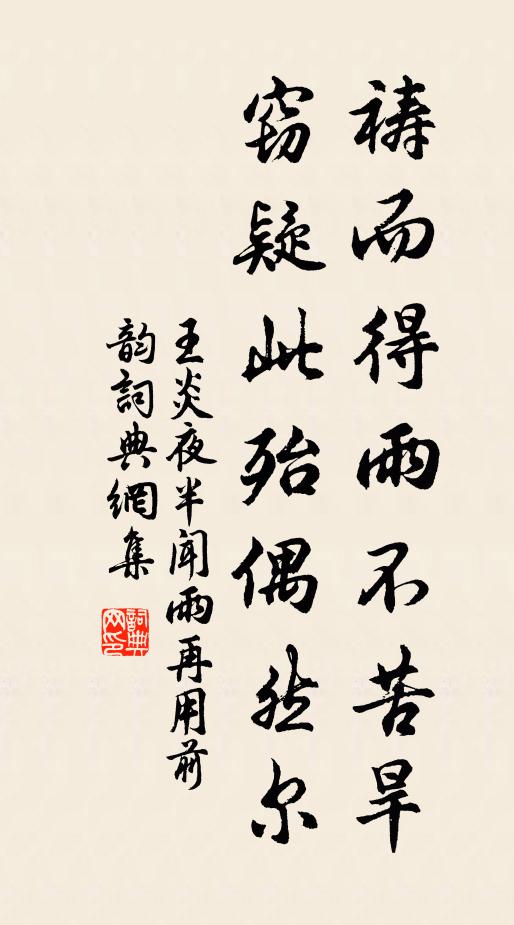 祷而得雨不苦旱
窃疑此殆偶然尔
王炎夜半闻雨再用前
韵詞典網集
詞典
网印